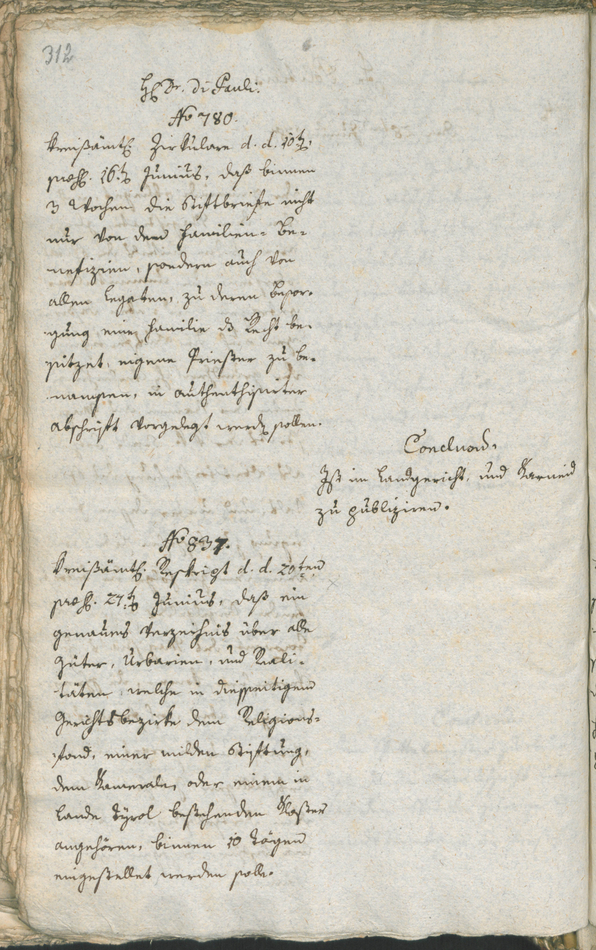 312
H. Dr. Di Pauli.
No 780.
Kreißämtl. Zirkulare d. d. 10t.
præs. 16t. Junius, daß binnen
3 Wochen die Stiftbriefe nicht
nur von dem Familien- Be-
nefizien, sondern auch von
allen Legaten, zu deren Besor-
gung eine Familie ds Recht be-
sitzet, eigene Priester zu be-
namsen, in authenthisirter
Abschrift vorgelegt werdn sollen.
Conclusum.
Ist im Landgericht, und Karneid
zu publiziren.
No 837.
Kreißämtl. Reskript d. d. 20ten
præs. 27t. Junius, daß ein
genaues Verzeichnis über alle
Güter, Urbarien, und Reali-
täten, welche in diesseitigem
Gerichtsbezirke dem Religions-
fond, einer milden Stiftung,
dem Kamerale, oder einem in
Lande Tyrol bestehenden Kloster
angehören, binnen 10 Tägen
eingestellet werden solle.